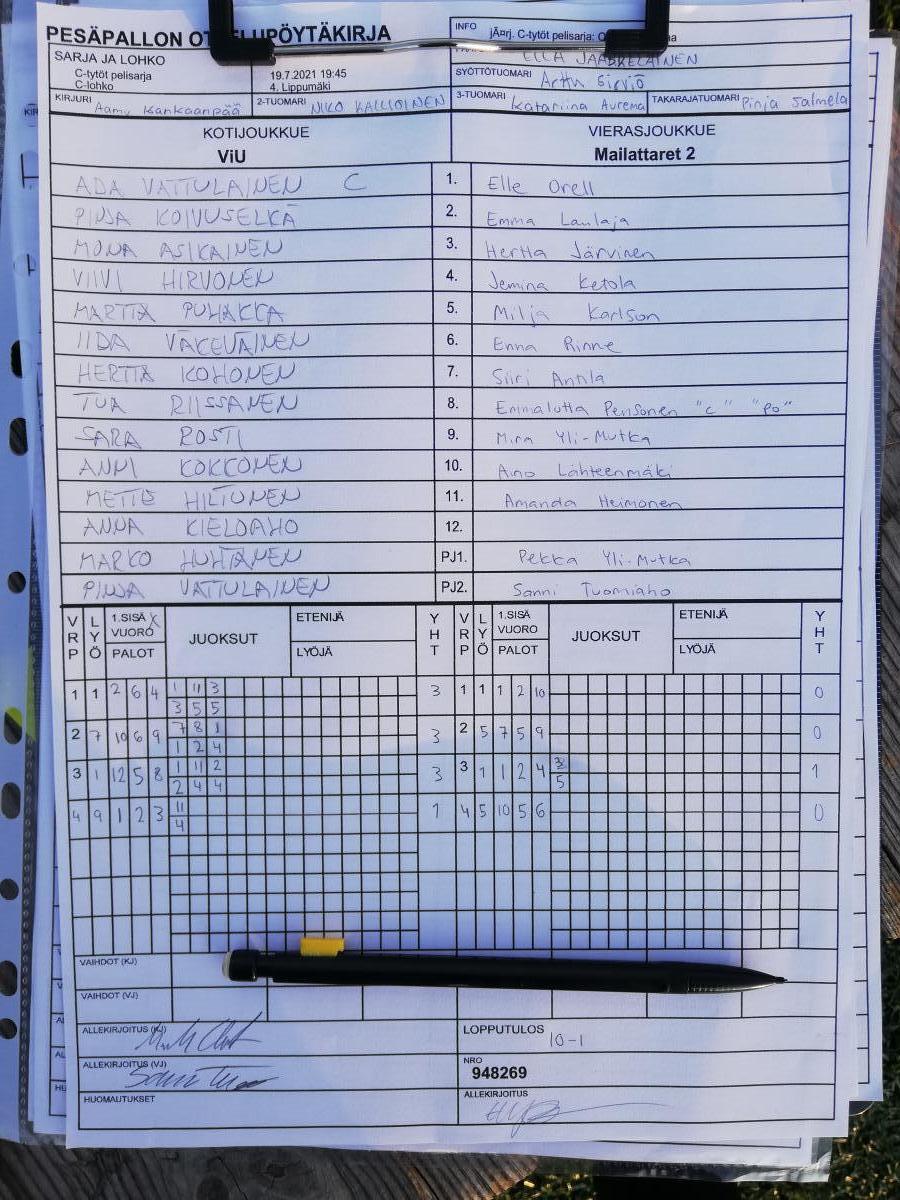 PESÄPALLON OT ELUPÖYTÄKIRJA
INFO jÃ¤rj. C-tytöt pelisarja:
ELLA JÄÄSKELÄINEN
SARJA JA LOHKO
C-tytöt pelisarja
C-lohko
19.7.2021 19:45
4. Lippumäki
SYÖTTÖTUOMARI Arttu Sirviö
KIRJURI Aamu Kankaanpää 2-TUOMARI NIKO KALLIOINEN 3-TUOMARI Katariina Aurema TAKARAJATUOMARI Pinja Salmela
KOTIJOUKKUE VIERASJOUKKUE
ViU Mailattaret 2
ADA VATTULAINEN C 1. Elle Orell
PINJA KOIVUSELKÄ 2. Emma Laulaja
MONA ASIKAINEN 3. Hertta Järvinen
VIIVI HIRVONEN 4. Jemina Ketola
MARTTA PUHAKKA 5. Milja Karlson
IIDA VÄKEVÄINEN 6. Enna Rinne
HERTTA KOHONEN 7. Siiri Anttila
TUA RIISSANEN 8. Emmalotta Pensonen "c" "po"
SARA ROSTI 9. Mira Yli-Mutka
ANNI KOKKONEN 10. Aino Lähteenmäki
METTE HILTUNEN 11. Amanda Heimonen
ANNA KIELOAHO 12.
MARKO HUHTANEN PJ1. Pekka Yli-Mutka
PINJA VATTULAINEN PJ2. Sanni Tuomiaho
VRP LYÖ 1.SISÄ X VUORO PALOT JUOKSUT ETENIJÄ LYÖJÄ YHT VRP LYÖ 1.SISÄ VUORO PALOT JUOKSUT ETENIJÄ LYÖJÄ YHT
1 1 2 6 4 1 11 3 3 1 1 1 2 10 0
3 5 5
2 7 10 6 9 7 8 1 3 2 5 7 5 9 0
1 2 4
3 1 12 5 8 1 11 2 3 3 1 1 2 4 3 1
2 4 4 5
4 9 1 2 3 11 1 4 5 10 5 6 0
4
VAIHDOT (KJ)
VAIHDOT (VJ)
ALLEKIRJOITUS (KJ) LOPPUTULOS 10-1
ALLEKIRJOITUS (VJ) NRO
948269
HUOMAUTUKSET ALLEKIRJOITUS